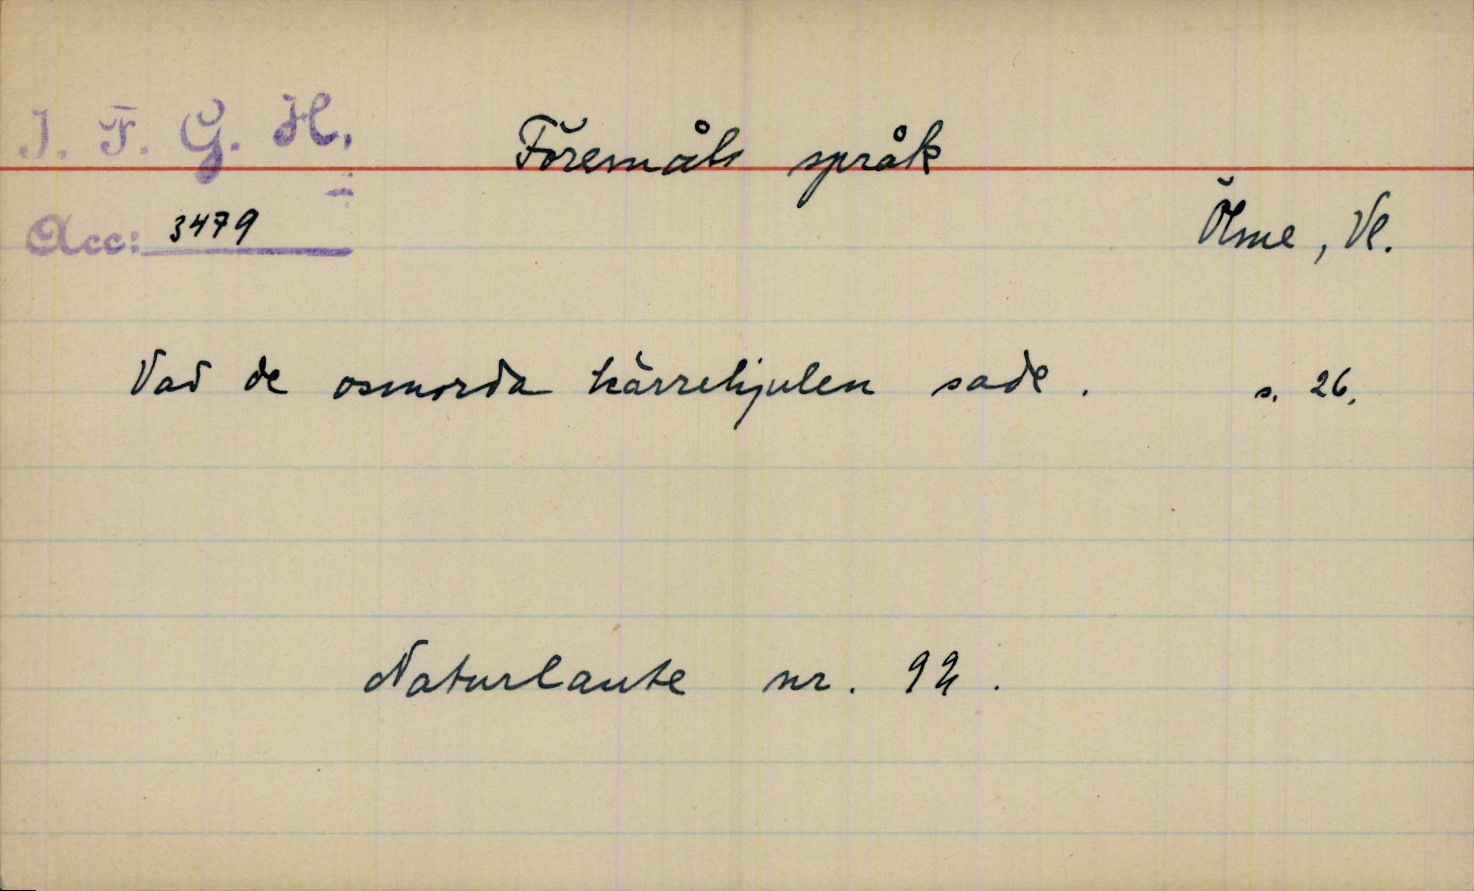 I. F. G. H.
Föremåls språk
Acc: 3479
Ölme, Vl.
Vad de osmorda kärrehjulen sade. s. 26.
Naturlaute nr. 92.